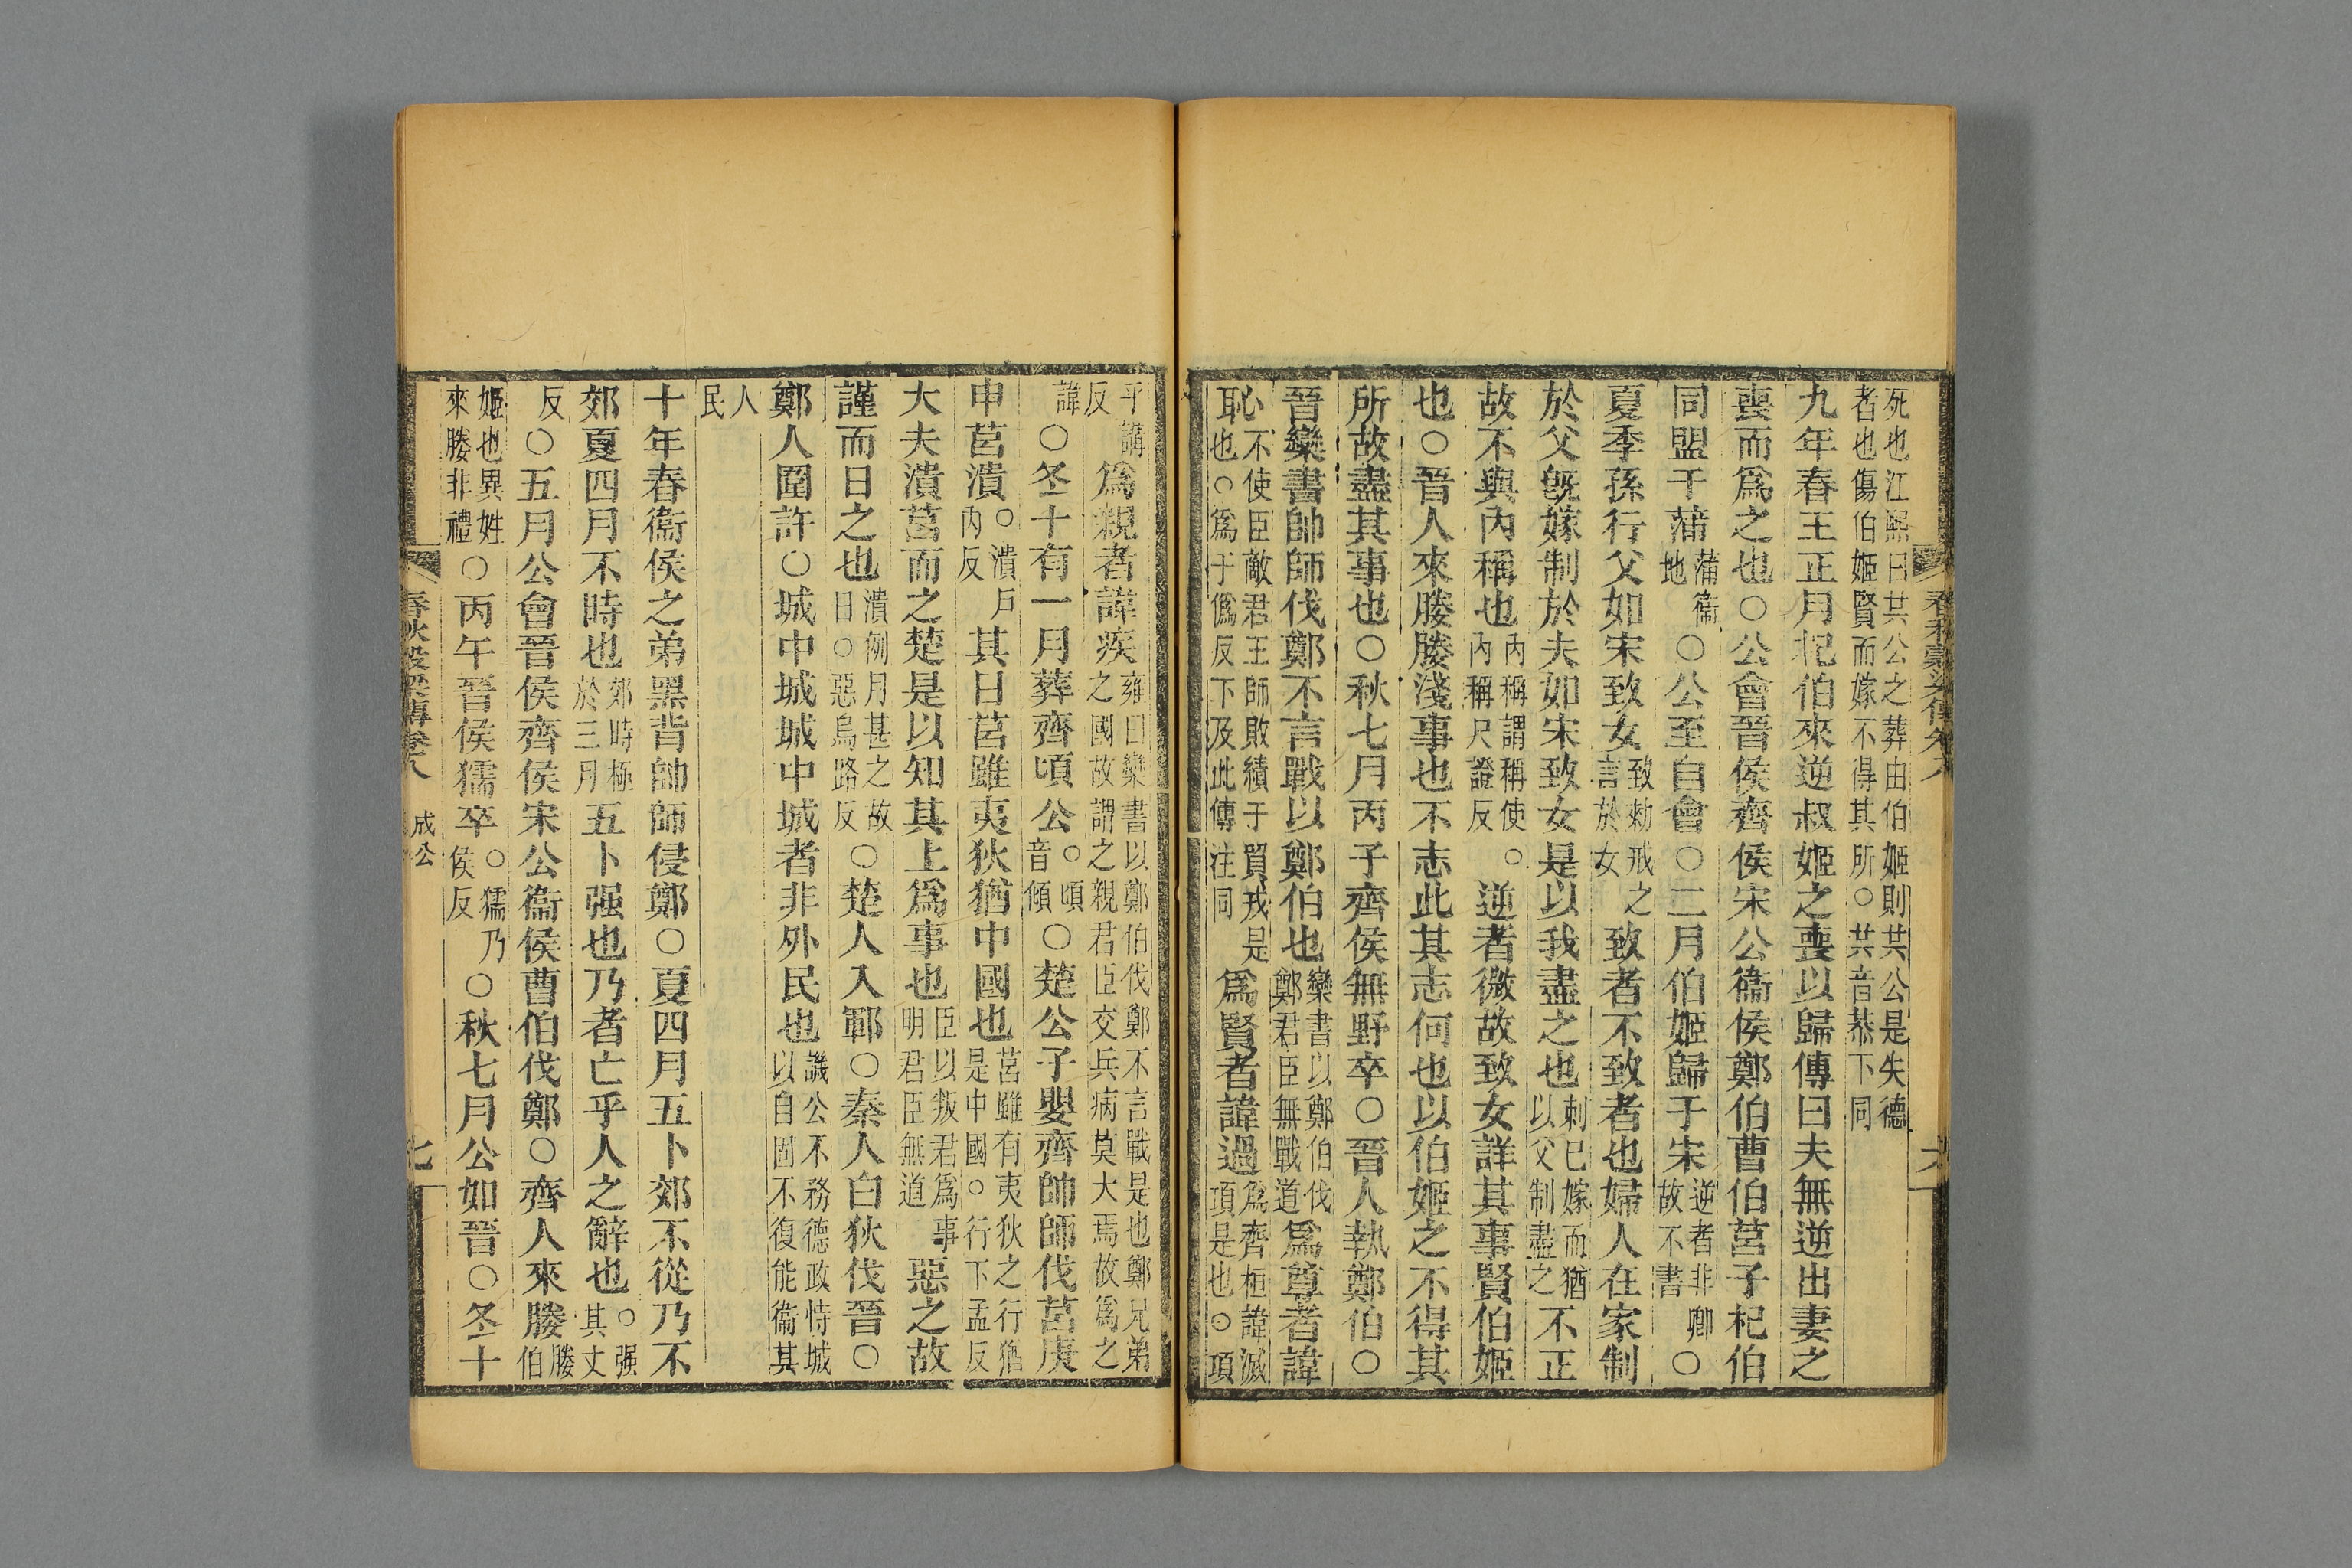 死也江熙曰共公之葬由伯姬則共公是失德
者也傷伯姬賢而嫁不得其所○共音恭下同
九年春王正月杞伯來逆叔姬之喪以歸傳曰夫無逆出妻之
喪而爲之也○公會晉侯齊侯宋公衞侯鄭伯曹伯莒子杞伯
同盟于蒲蒲衞地○公至自會○二月伯姬歸于宋逆者非卿故不書○
夏季孫行父如宋致女致勑戒之言於女致者不致者也婦人在家制
於父既嫁制於夫如宋致女是以我盡之也刺已嫁而猶以父制盡之不正
故不與內稱也內稱謂稱使○內稱尺證反逆者微故致女詳其事賢伯姬
也○晉人來媵媵淺事也不志此其志何也以伯姬之不得其
所故盡其事也○秋七月丙子齊侯無野卒○晉人執鄭伯○
晉欒書帥師伐鄭不言戰以鄭伯也欒書以鄭伯伐鄭君臣無戰道爲尊者諱
恥不使臣敵君王師敗績于貿戎是也○爲于僞反下及此傳注同爲賢者諱過爲齊桓諱滅項是也○項
春秋穀梁傳卷八
六
平講反諱爲親者諱疾雍曰欒書以鄭伯伐鄭不言戰是也鄭兄弟之國故謂之親君臣交兵病莫大焉故爲之
○冬十有一月葬齊頃公○頃音傾○楚公子嬰齊帥師伐莒庚
申莒潰○潰戶內反其日莒雖夷狄猶中國也莒雖有夷狄之行猶是中國○行下孟反
大夫潰莒而之楚是以知其上爲事也臣以叛君爲事明君臣無道惡之故
謹而日之也潰例月甚之故日○惡烏路反○楚人入鄆○秦人白狄伐晉○
鄭人圍許○城中城城中城者非外民也譏公不務德政恃城以自固不復能衞其
人民
十年春衞侯之弟黑背帥師侵鄭○夏四月五卜郊不從乃不
郊夏四月不時也郊時極於三月五卜强也乃者亡乎人之辭也○强其丈
反○五月公會晉侯齊侯宋公衞侯曹伯伐鄭○齊人來媵媵伯
姬也異姓來媵非禮○丙午晉侯獳卒○獳乃侯反○秋七月公如晉○冬十
春秋穀梁傳卷八
成公
七